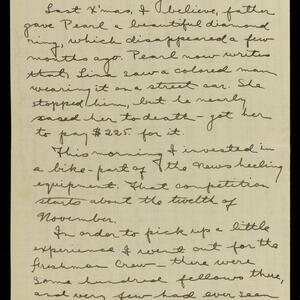 Last X'mas, I believe, father
gave Pearl a beautiful diamond
ring, which disappeared a few
months ago. Pearl now writes
that Lina saw a colored man
wearing it on a street car. She
stopped him, but he nearly
sased her to death – got her
to pay $225. for it.
This morning I invested in
a bike – part of the News heeling
equipment. That competition
starts about the twelth of
November.
In order to pick up a little
experience I went out for the
freshman Crew – there were
some hundred fellows there,
and very few had ever seen